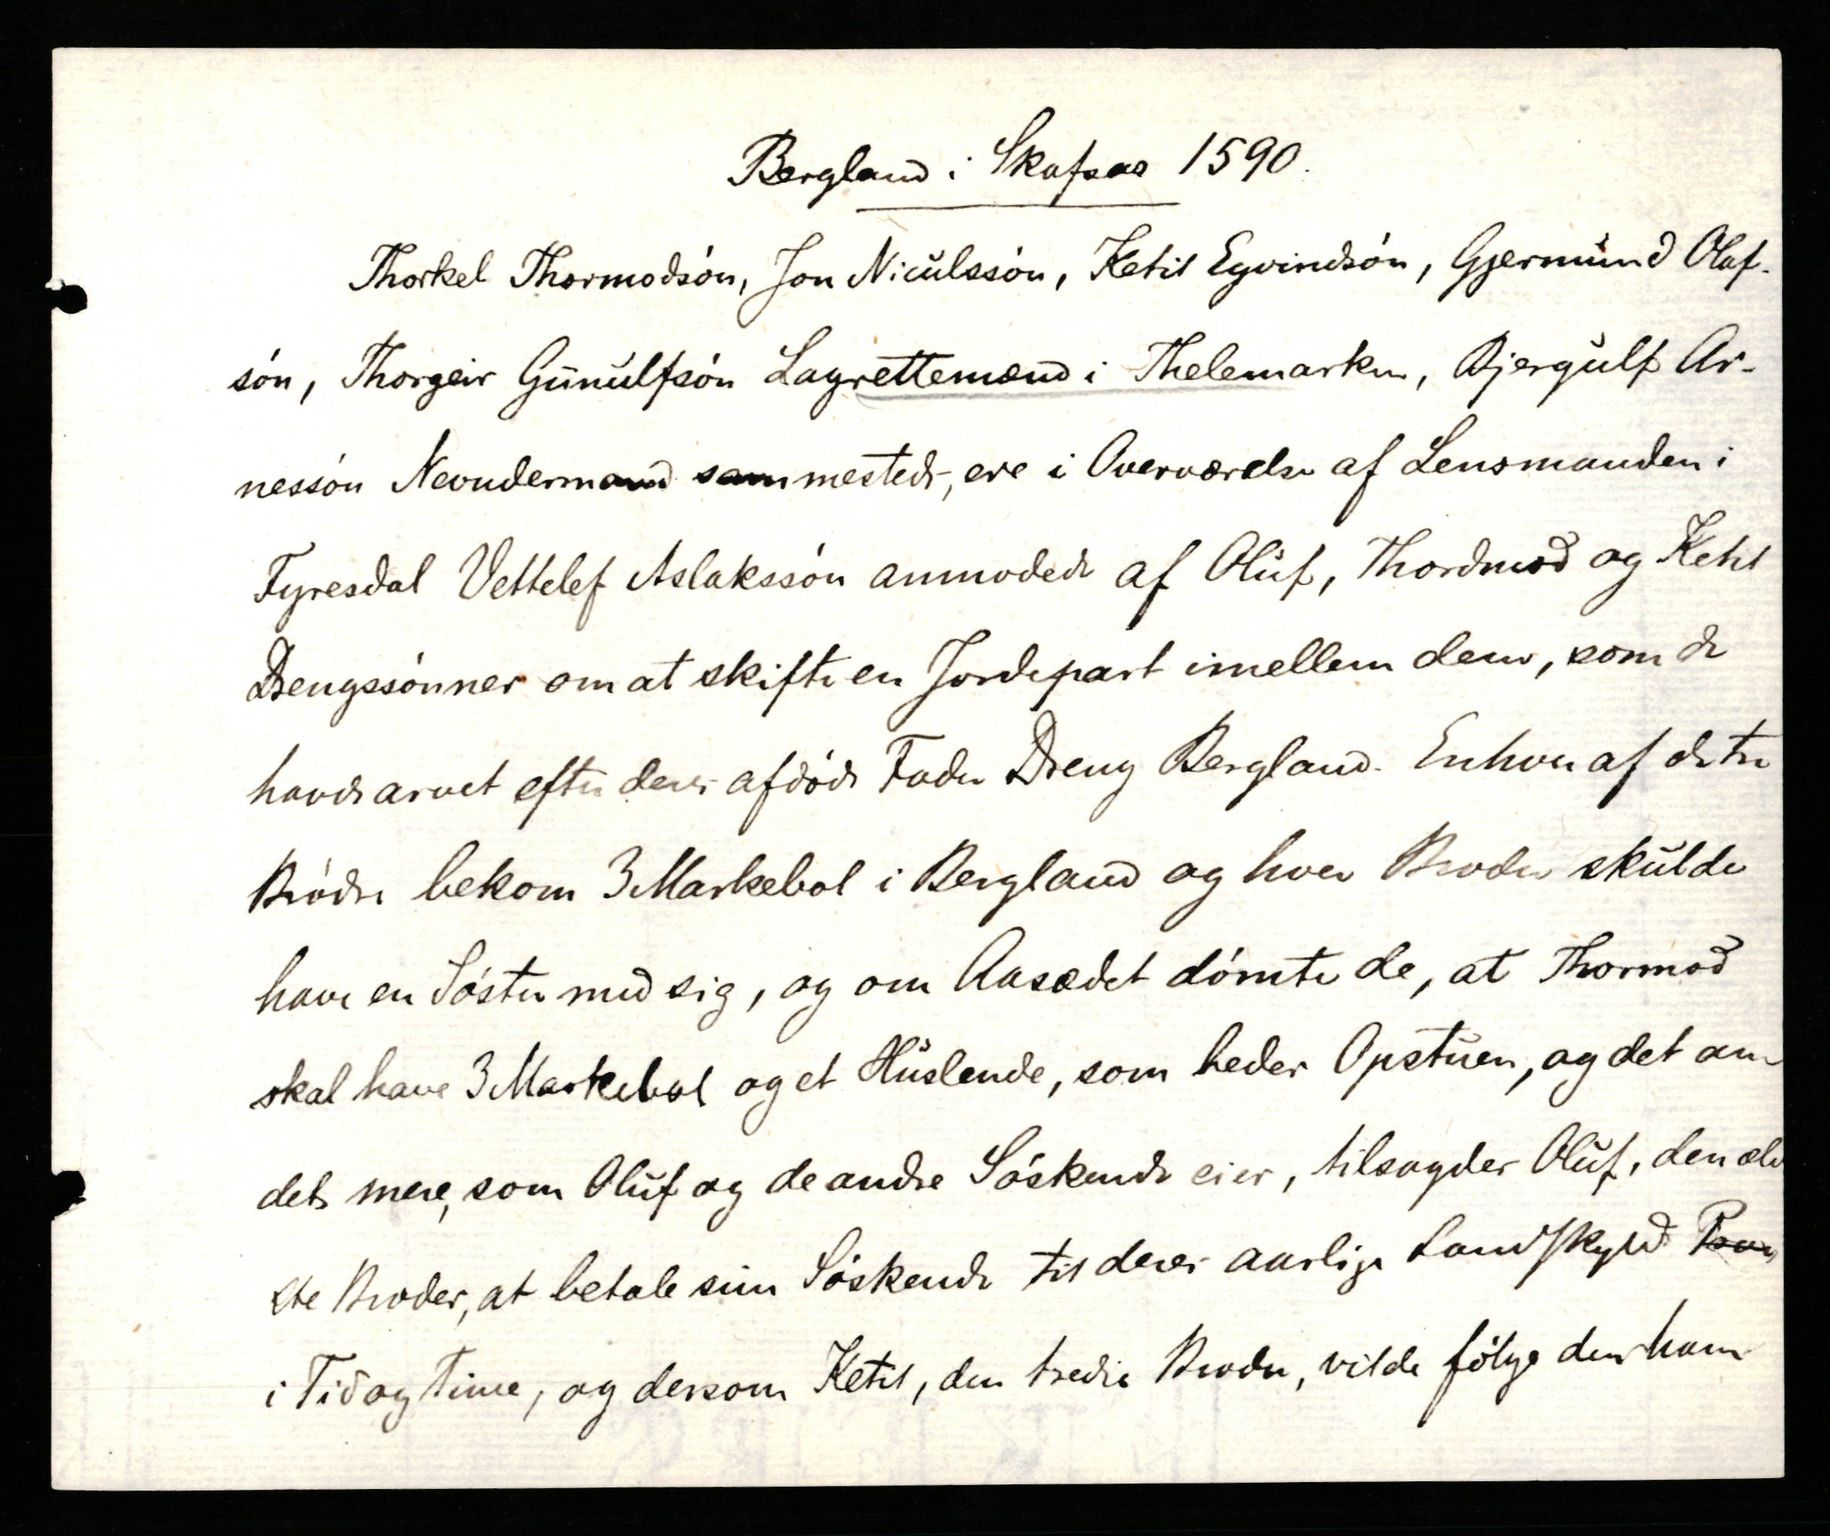 Bergland i Skafsaa 1590.
Thorkel Thormodsón, Jon Niculssón, Ketil Eyvindsón, Gjermund Olaf-
són, Thorgeir Gunulfsón Lagrettemænd i Thelemarken, Bjergulf Ar-
nessón Nevndermand sammesteds, ere i Overværelse af Lensmanden i
Fyresdal Vettelef Aslakssón anmodede af Oluf, Thordmod og Ketil
Drengssónner om at skifte en Jordepart imellem dem, som de
havde arvet efter deres afdóde Fader Dreng Bergland. Enhver af de tre
Bródre bekom 3 Markebol i Bergland og hver Broder skulde
have en Sóster med sig, og om Aasædet dómte de, at Thormod
skal have 3 Markebol og et Huslende, som heder Opstuen, og det an-
det mere, som Oluf og de andre Sóskende eier, tilsagde Oluf, den æld
ste Broder, at betale sine Sóskende til deres aarlige Landskyld
i Tid og Time, og dersom Ketil, den tredie Broder, vilde fólge den ham